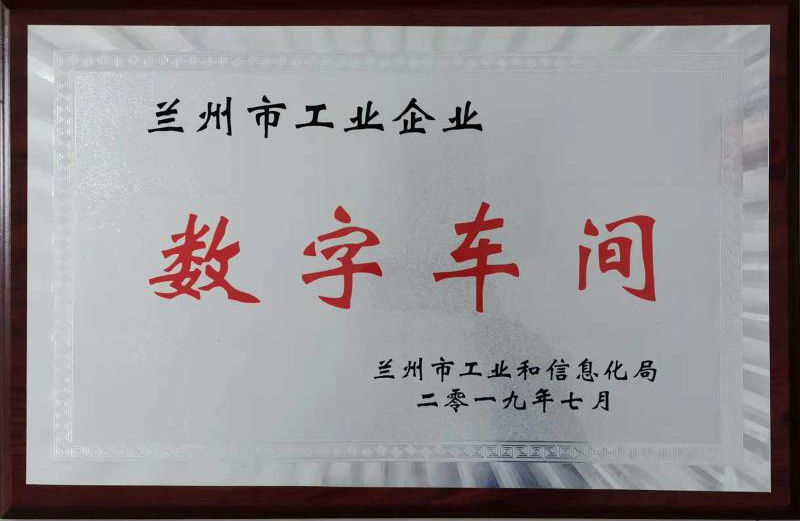 兰州市工业企业
数字车间
兰州市工业和信息化局
二零一九年七月